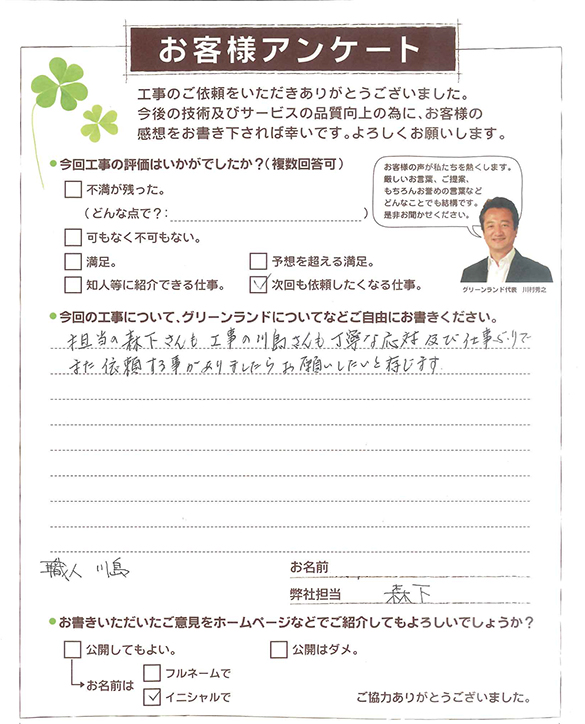 お客様アンケート
工事のご依頼をいただきありがとうございました。
今後の技術及びサービスの品質向上の為に、お客様の
感想をお書き下されば幸いです。よろしくお願いします。
今回工事の評価はいかがでしたか?(複数回答可)
不満が残った。
(どんな点で?:)
可もなく不可もない。
満足。
予想を超える満足。
知人等に紹介できる仕事。
次回も依頼したくなる仕事。
お客様の声が私たちを熱くします。
厳しいお言葉、ご提案、
もちろんお誉めの言葉など
どんなことでも結構です。
是非お聞かせください。
グリーンランド代表 川村秀之
今回の工事について、グリーンランドについてなどご自由にお書きください。
担当の森下さんも工事の川島さんも丁寧な応対及び仕事ぶりで
また依頼する事がありましたらお願いしたいと存じます
職人 川島
お名前
弊社担当 森下
お書きいただいたご意見をホームページなどでご紹介してもよろしいでしょうか?
公開してもよい。
公開はダメ。
お名前は
フルネームで
イニシャルで
ご協力ありがとうございました。